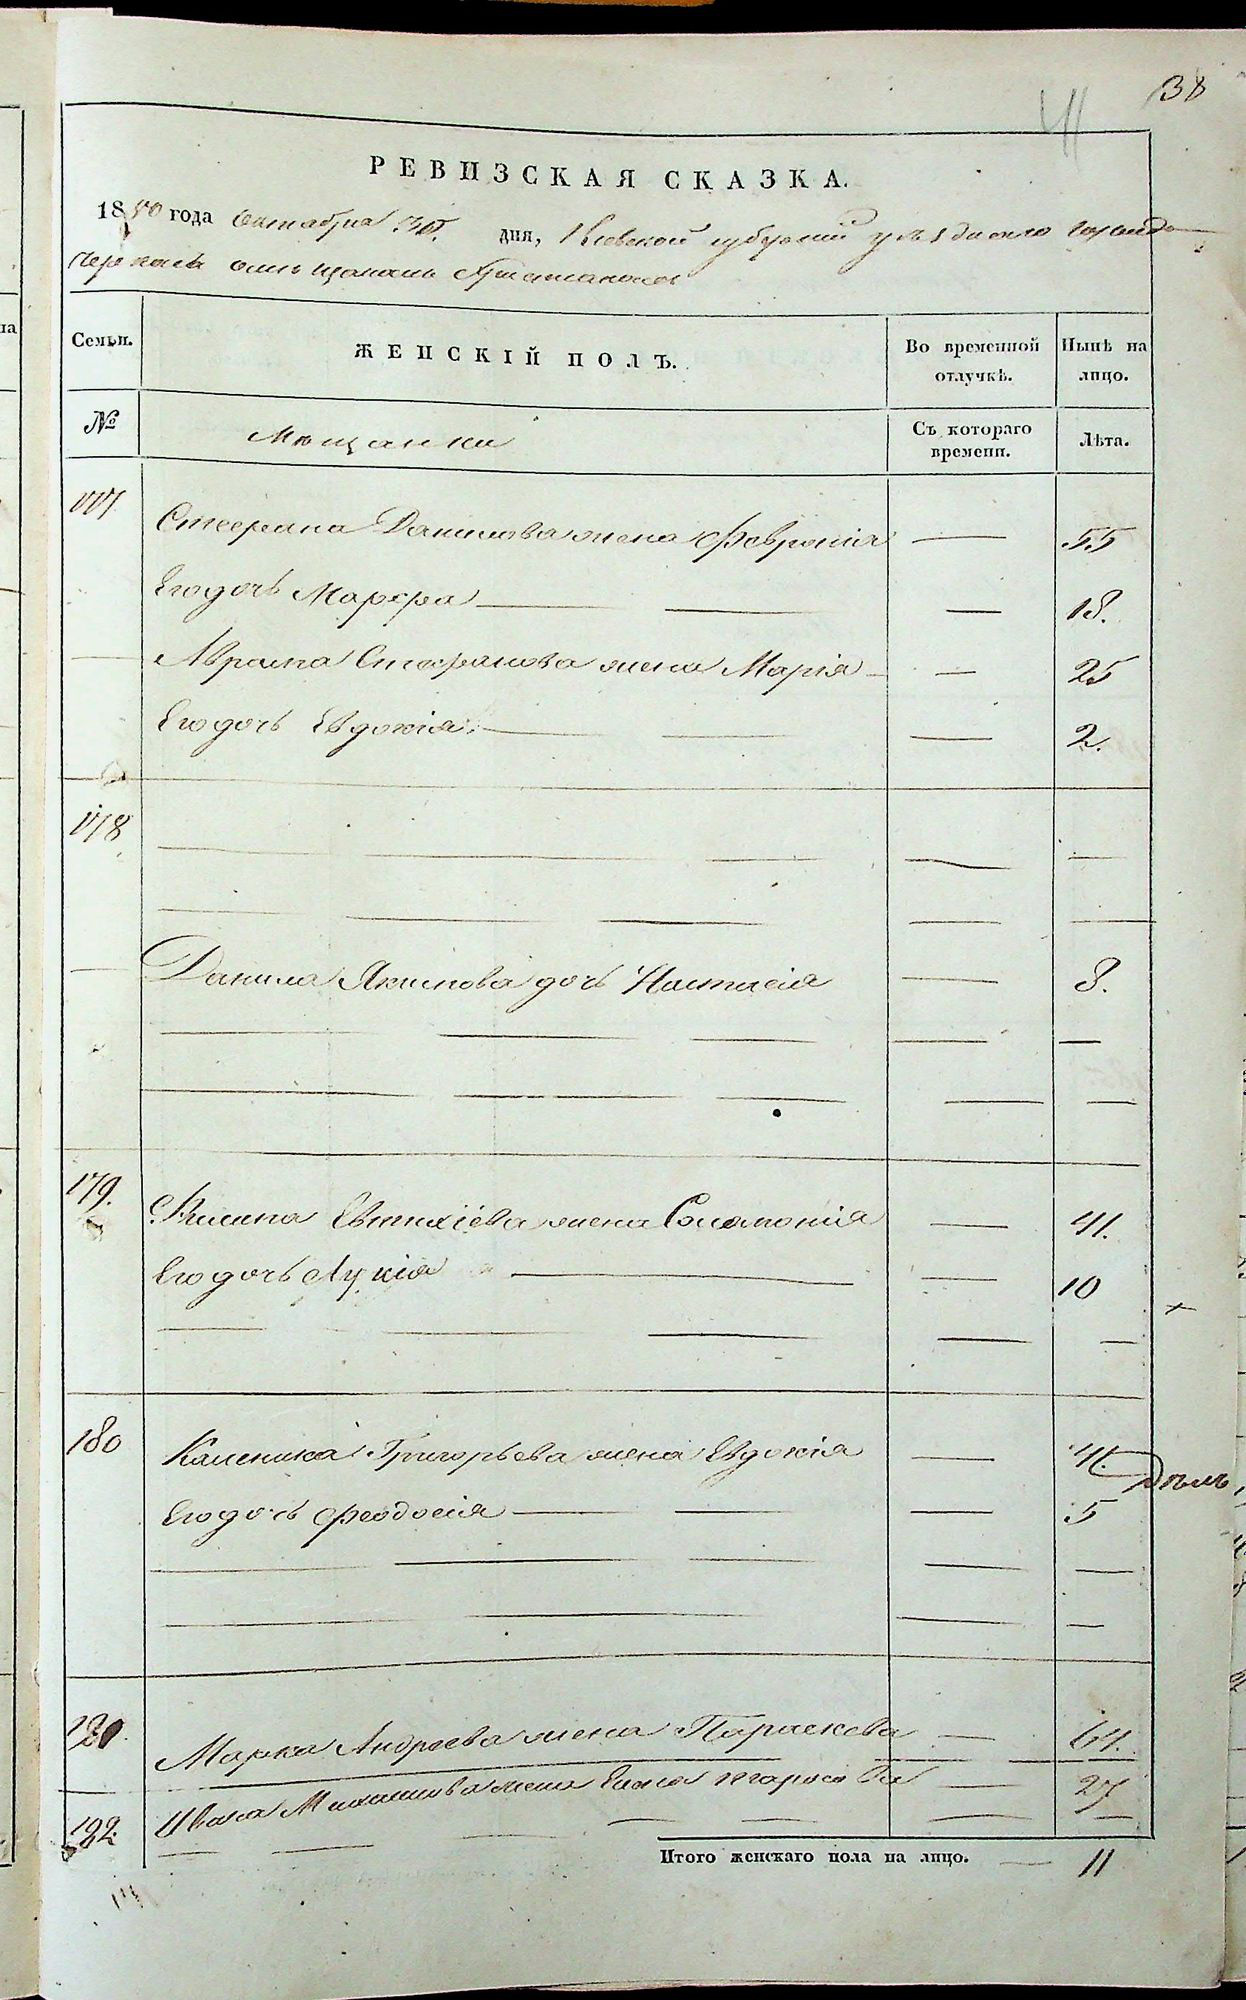 38
41
РЕВИЗСКАЯ СКАЗКА.
1850 года Октября 30. дня, Кіевской губерніи уѣзднаго города
Черкасъ о мѣщанахъ
Семьи. ЖЕНСКІЙ ПОЛЪ. Во временной отлучкѣ. Нынѣ на лицо.
№ Мѣщанки Съ котораго времени. Лѣта.
177. Стефана Данилова жена Февронія — 55
Его дочь Марфа — 18.
Аврама Стефанова жена Марія — 25
Его дочь Евдокія — 2.
178
Данила Якимова дочь Настасія — 8.
179. Евтихіева жена Соломонія — 41.
Его дочь Лукія — 10
180 Каленика Григорьева жена Евдокія — 41.
Его дочь Феодосія — 5
Марка Андреева жена Параскева — 64.
Ивана жена 27
192.
Итого женскаго пола на лицо. — 11